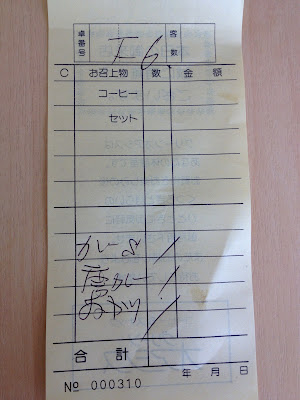 卓番号 T-6 客数
C お召上物 数 金額
コーヒー
セット
カレー8 /
唐カレー /
おかわり /
合計
年 月 日
No 000310